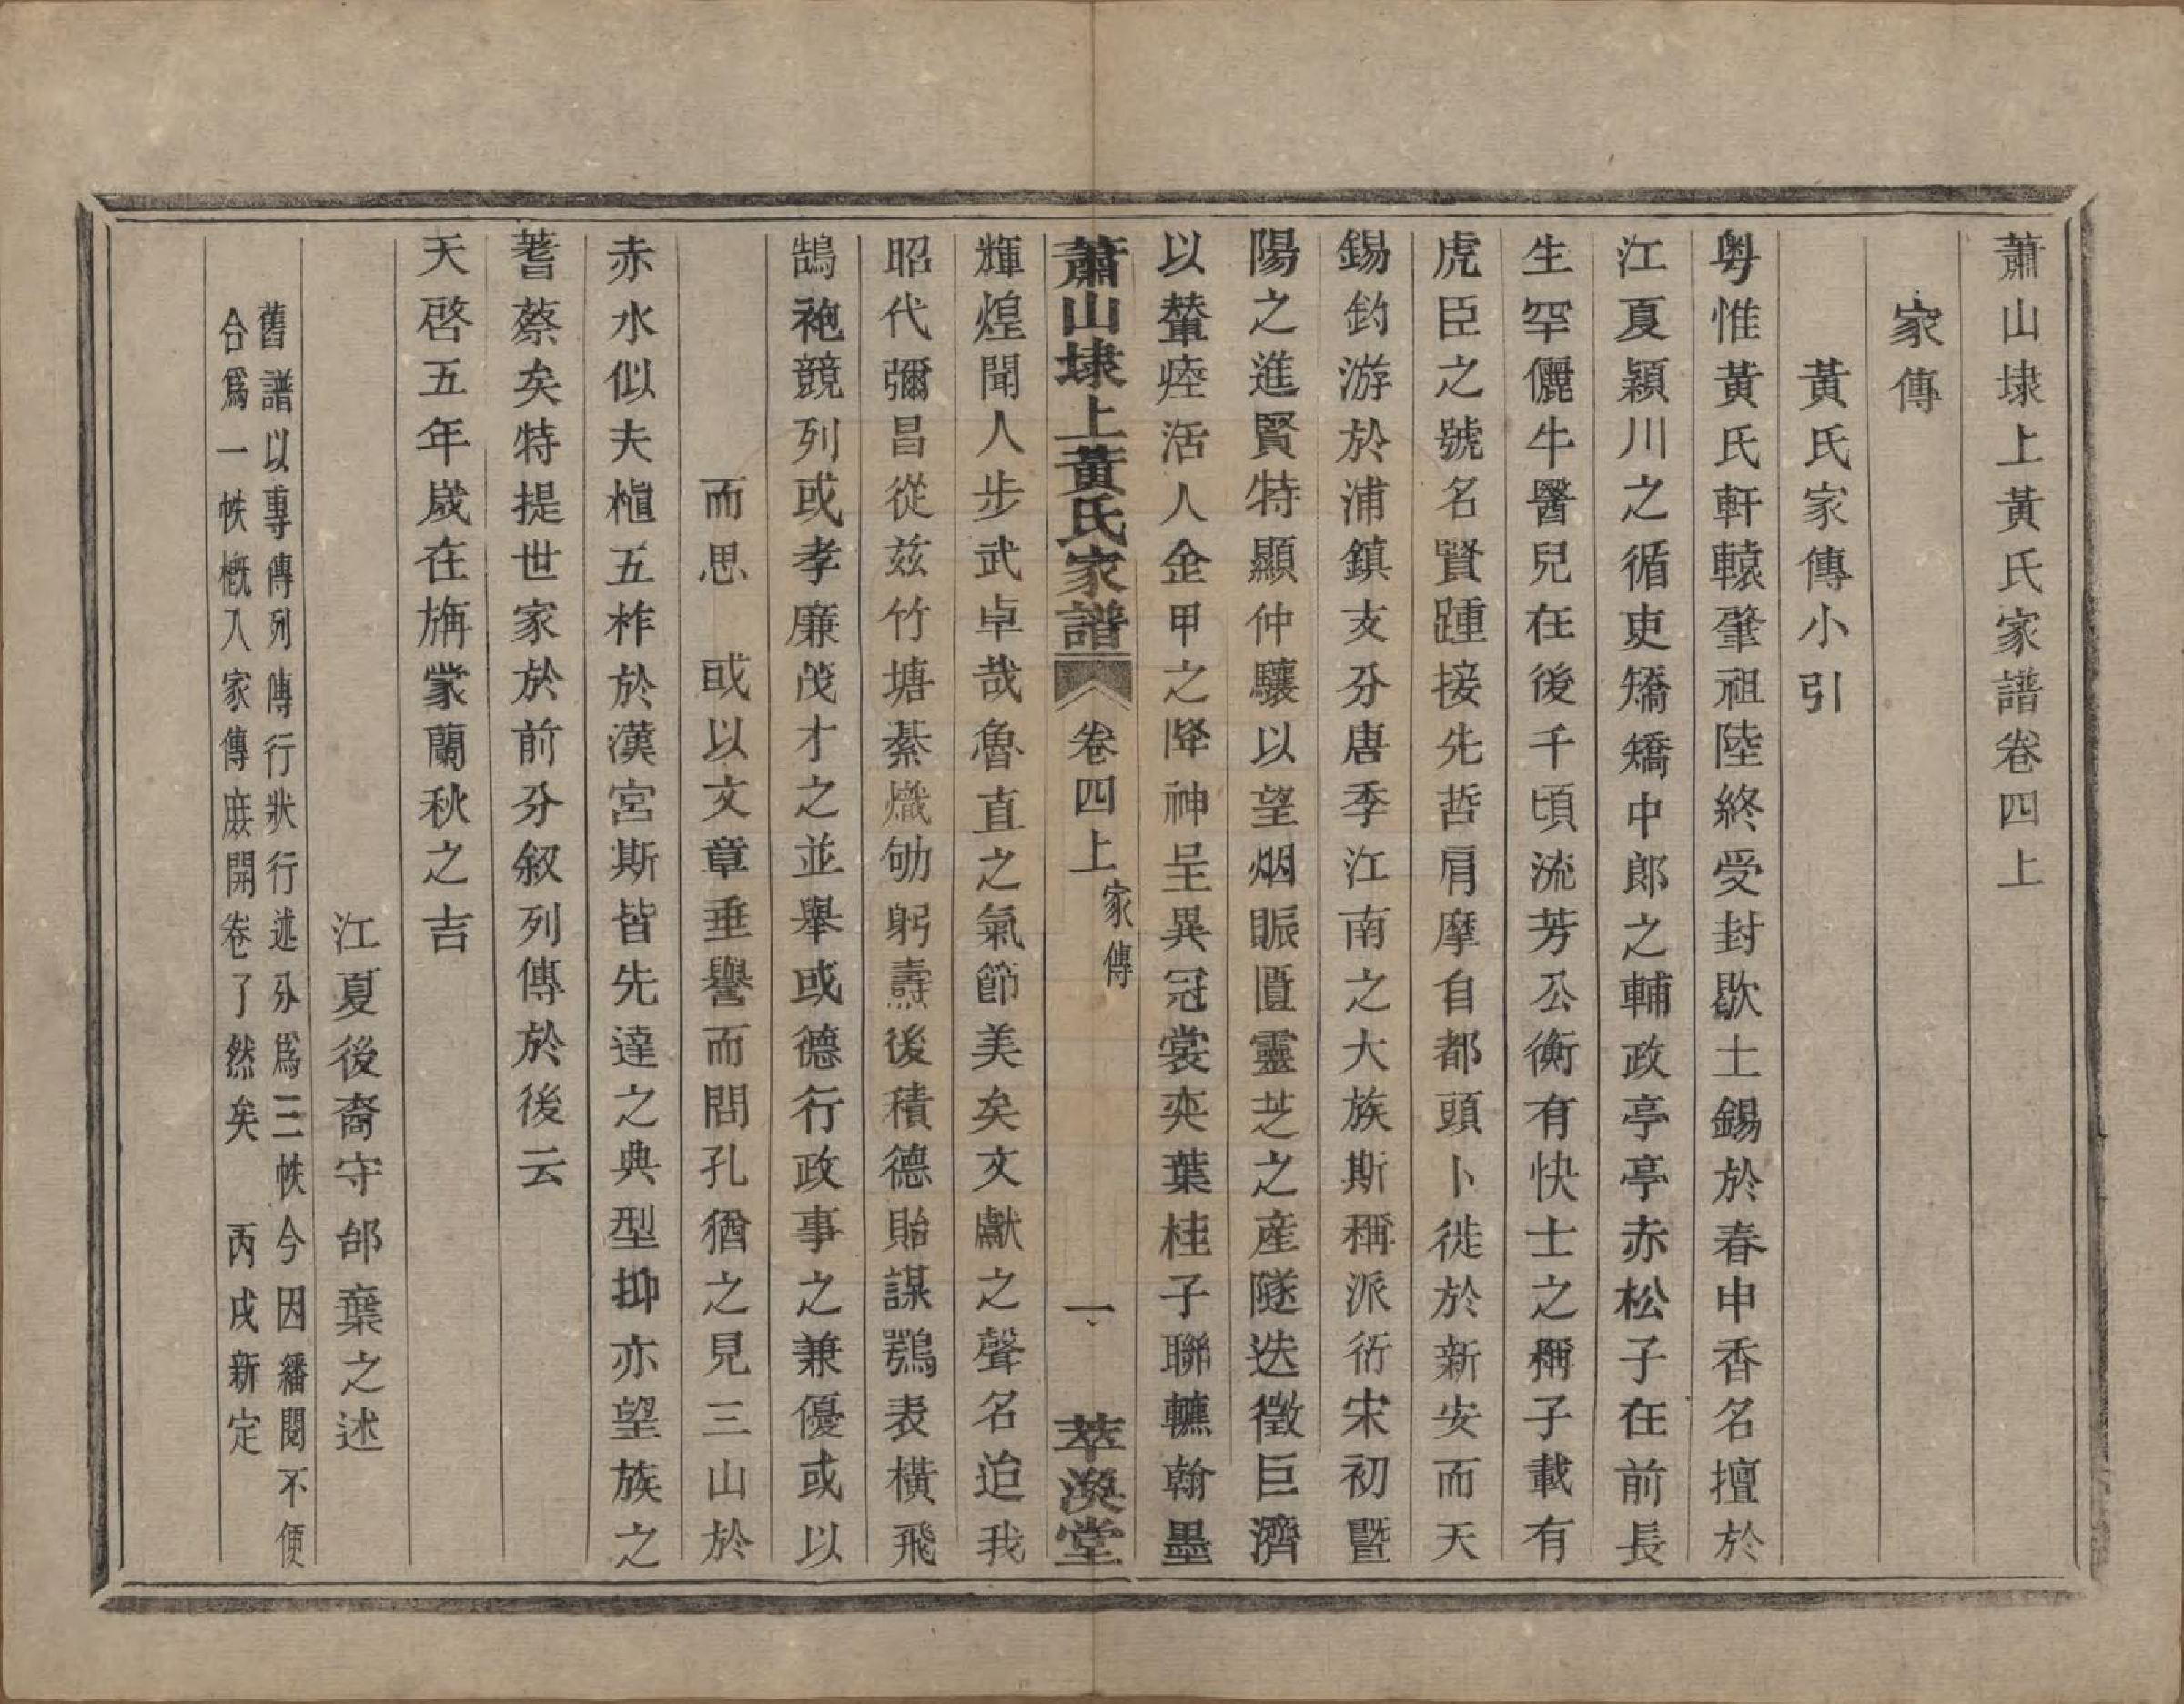 蕭山埭上黃氏家譜卷四上
家傳
黃氏家傳小引
粵惟黃氏軒轅肇祖陸終受封歇土錫於春申香名擅於
江夏潁川之循吏矯矯中郎之輔政亭亭赤松子在前長
生罕儷牛醫兒在後千頃流芳公衡有快士之稱子載有
虎臣之號名賢踵接先哲肩摩自都頭卜徙於新安而天
錫釣游於浦鎮支分唐季江南之大族斯稱派衍宋初暨
陽之進賢特顯仲驤以望烟賑匱靈芝之產隧迭徵巨濟
以輦瘞活人金甲之降神呈異冠裳奕葉桂子聯鑣翰墨
蕭山埭上黃氏家譜 卷四上 家傳 一 萃渙堂
輝煌聞人步武卓哉魯直之氣節美矣文獻之聲名迨我
昭代彌昌從茲竹塘綦熾劬躬燾後積德貽謀鶚表橫飛
鵠袍競列或孝廉茂才之並舉或德行政事之兼優或以
而思 或以文章垂譽而問孔猶之見三山於
赤水似夫植五柞於漢宮斯皆先達之典型抑亦望族之
蓍蔡矣特提世家於前分叙列傳於後云
天啓五年歲在旃蒙蘭秋之吉
江夏後裔守邰棄之述
舊譜以專傳列傳行狀行述分爲三帙今因繙閱不便
合爲一帙概入家傳庶開卷了然矣 丙戌新定